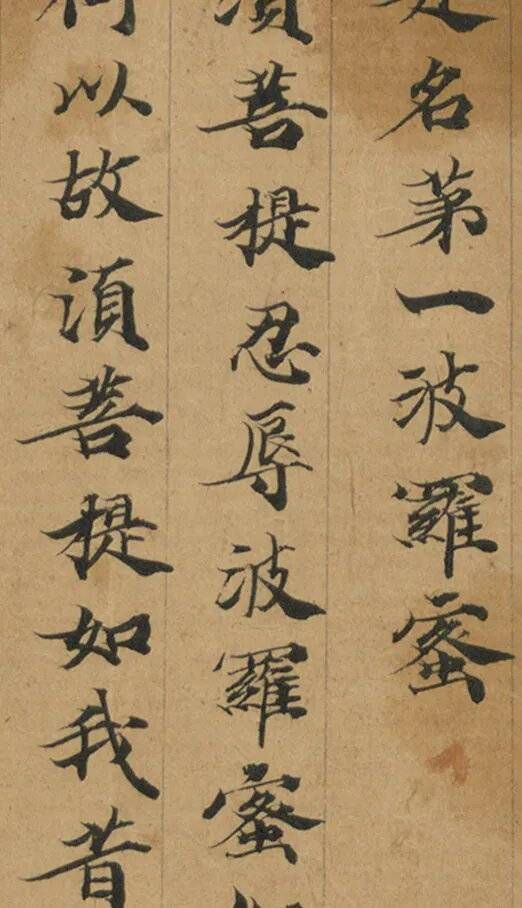 是名第一波羅蜜
須菩提忍辱波羅蜜如
何以故須菩提如我昔